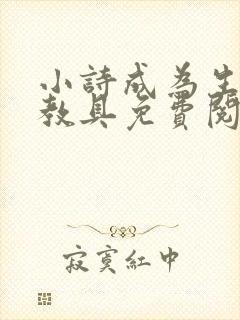 小詩成為生
教具免費閱
寂寞紅中